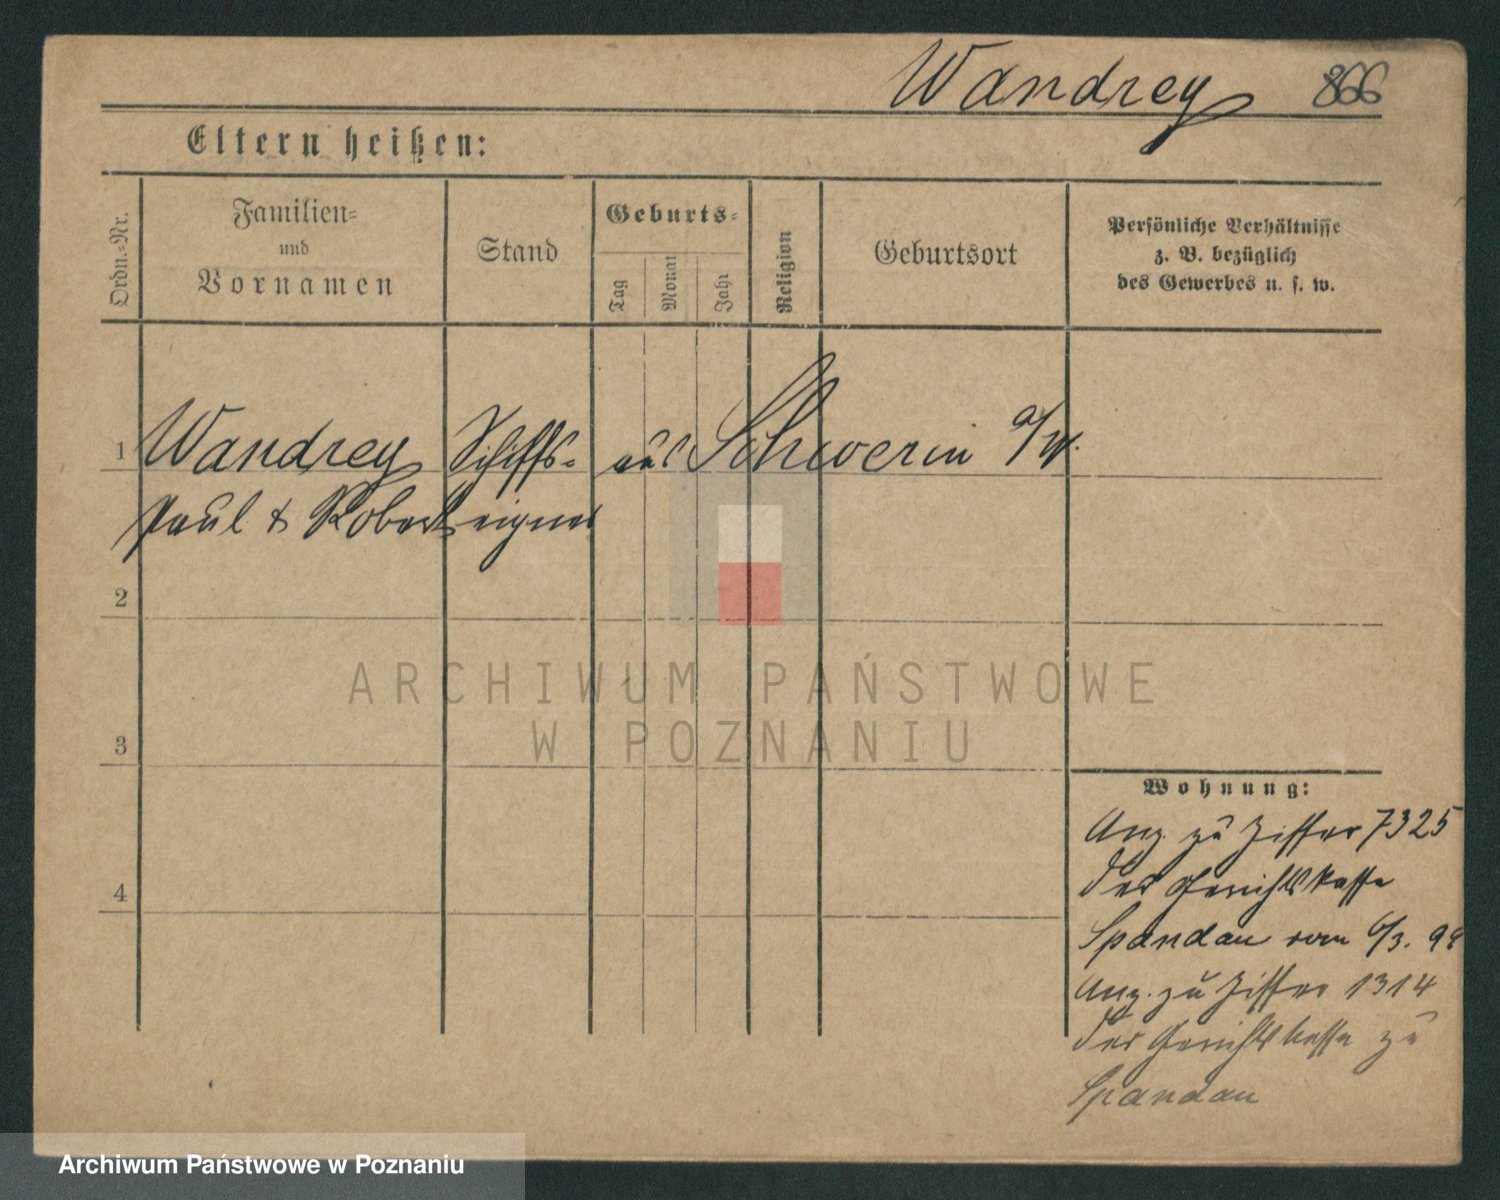 Wandrey 866
Eltern heißen:
Ordn.-Nr.
Familien-
und
Vornamen
Stand
Geburts-
Tag
Monat
Jahr
Religion
Geburtsort
Persönliche Verhältnisse
z. B. bezüglich
des Gewerbes u. s. w.
1 Wandrey Schiffs- aus Schwerin a/W.
Paul & Robert eigner
2
3
4
Wohnung:
Anz. zu Ziffer 7325
der Gerichtskasse
Spandau vom 6/3. 99
Anz. zu Ziffer 1314
der Gerichtskasse zu
Spandau
ARCHIWUM PAŃSTWOWE
W POZNANIU
Archiwum Państwowe w Poznaniu